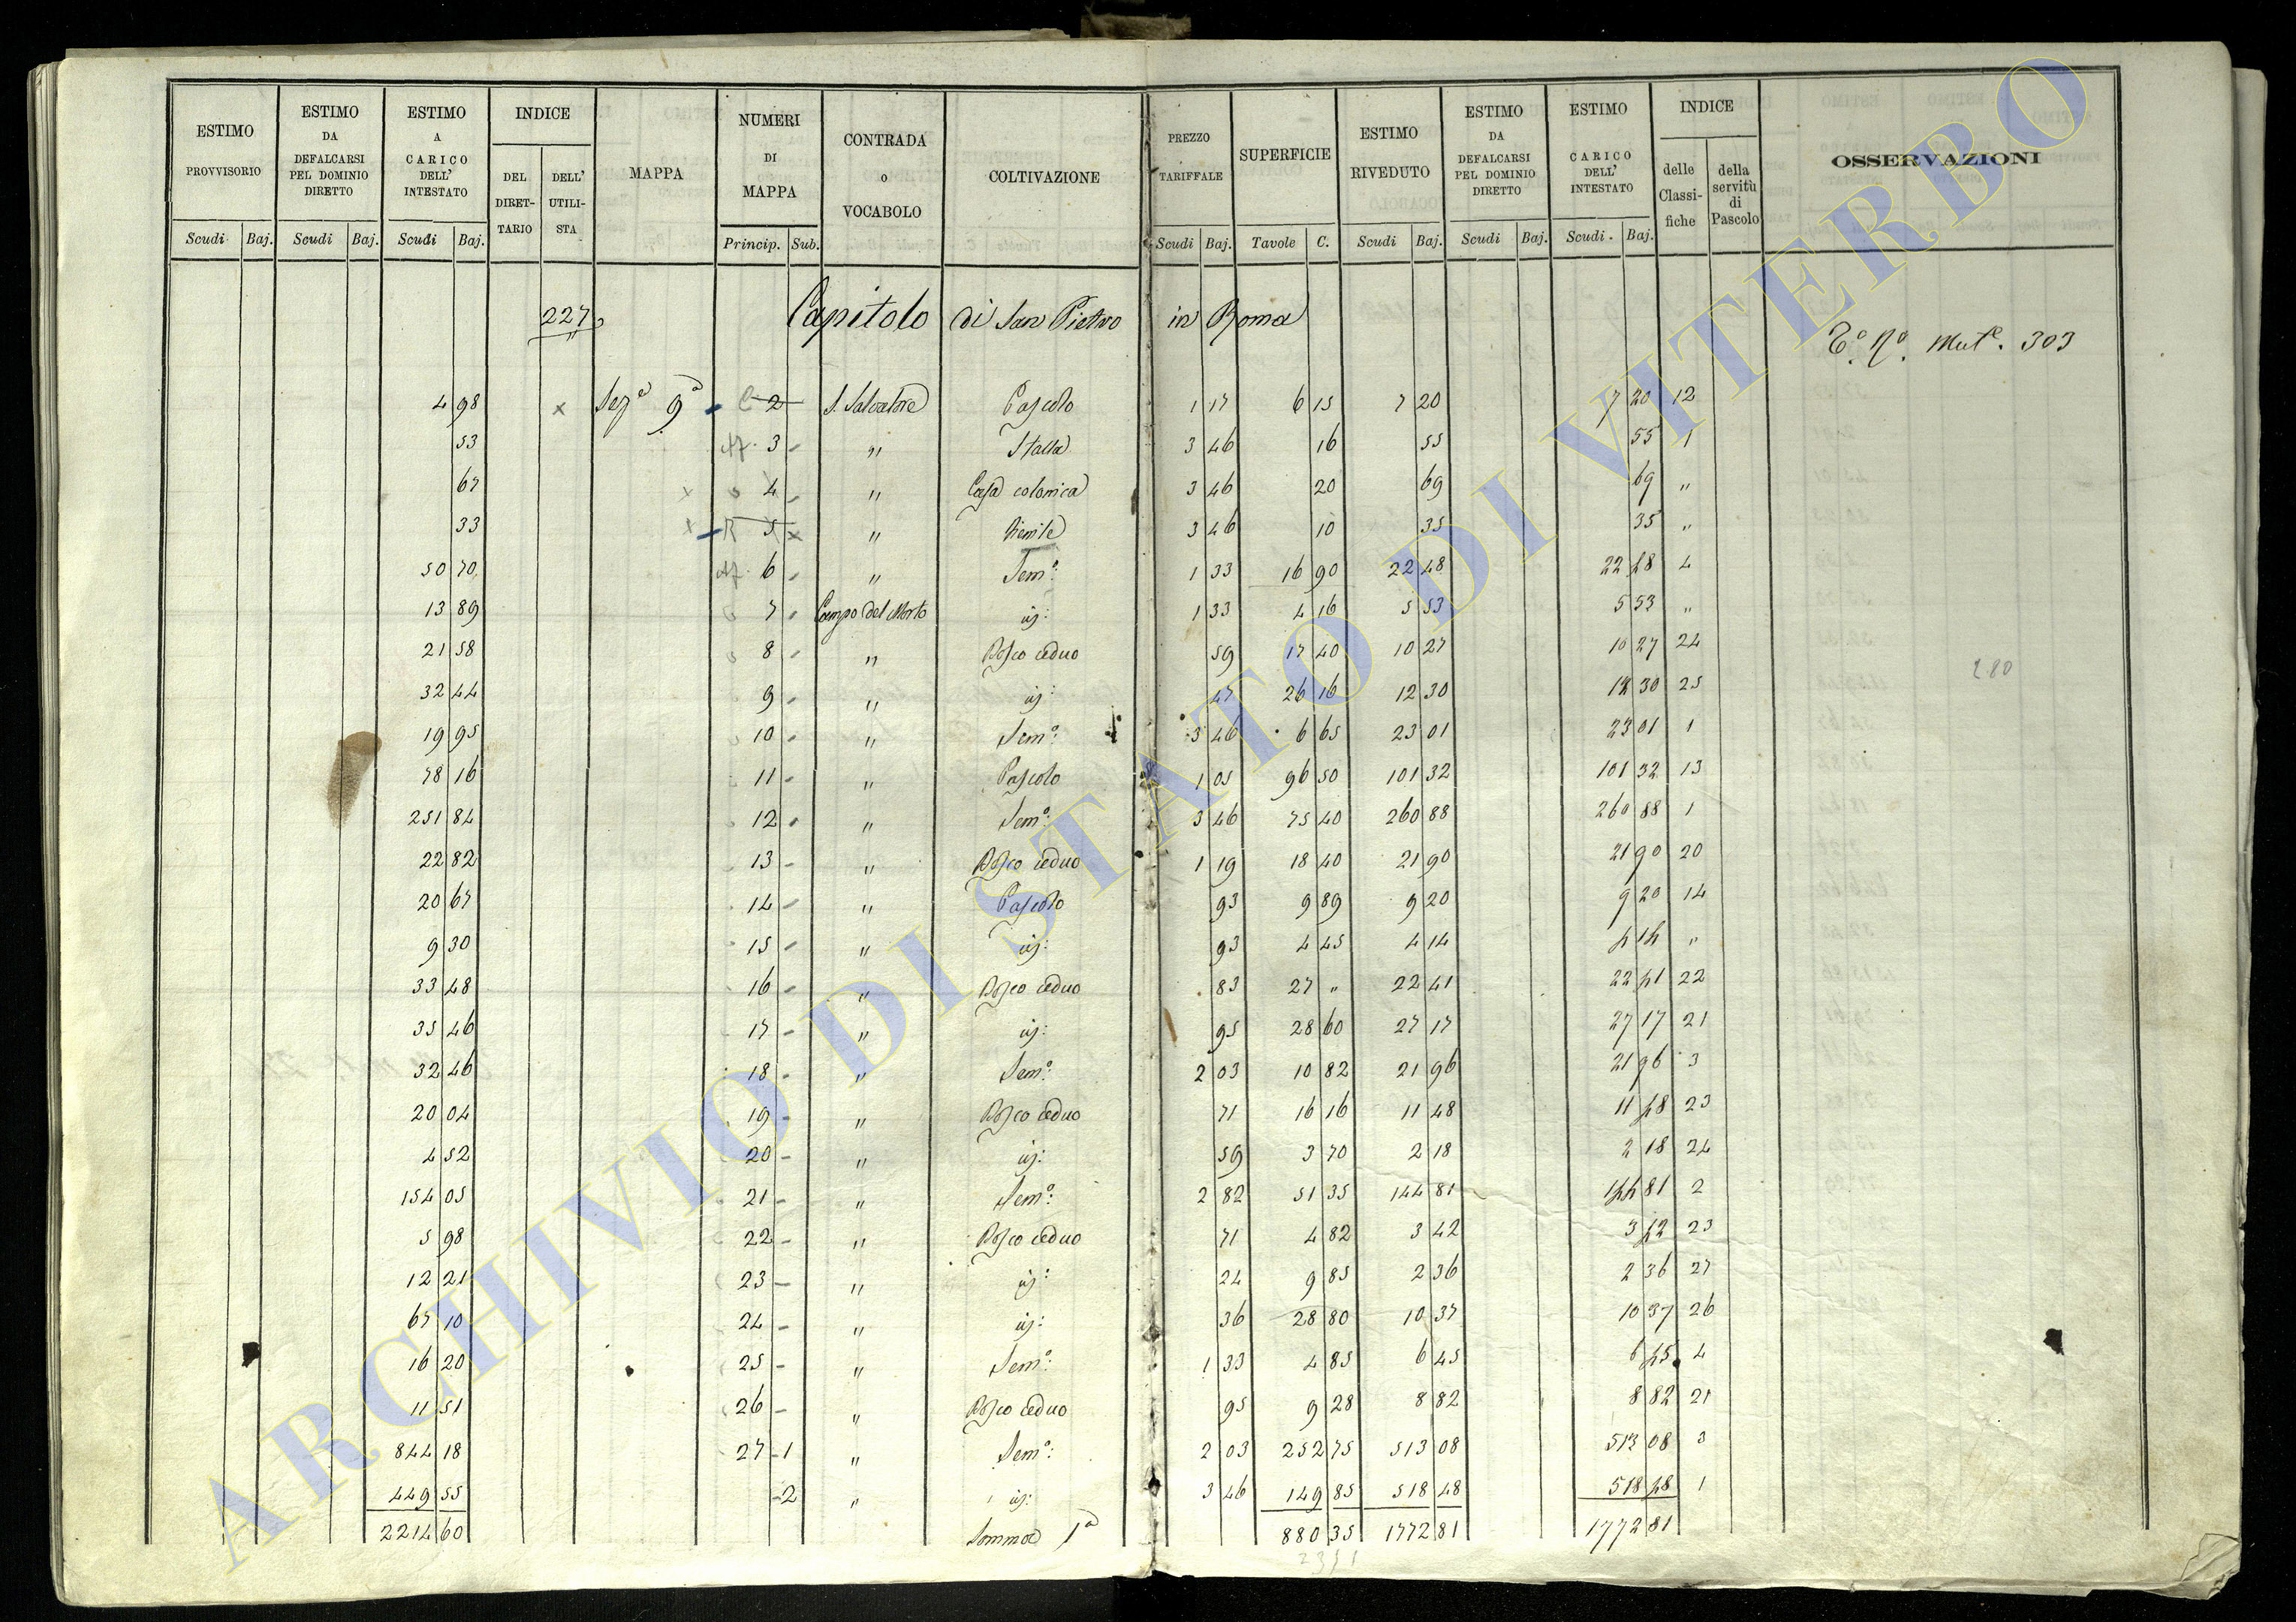 ESTIMO PROVVISORIO Scudi Baj. | ESTIMO DA DEFALCARSI PEL DOMINIO DIRETTO Scudi Baj. | ESTIMO A CARICO DELL' INTESTATO Scudi Baj. | INDICE DEL DIRET- TARIO | DELL' UTILI- STA | MAPPA | NUMERI DI MAPPA Princip. Sub. | CONTRADA O VOCABOLO | COLTIVAZIONE | PREZZO TARIFFALE Scudi Baj. | SUPERFICIE Tavole C. | ESTIMO RIVEDUTO Scudi Baj. | ESTIMO DA DEFALCARSI PEL DOMINIO DIRETTO Scudi Baj. | ESTIMO A CARICO DELL' INTESTATO Scudi Baj. | INDICE delle Classi- fiche | della servitù di Pascolo | OSSERVAZIONI
227 Capitolo di San Pietro in Roma
Mut.e 303
4 98 x Sez.a 9a 2 S. Salvatore Pascolo 1 17 6 15 7 20 7 20 12
53 3 " Stalla 3 46 16 55 55 1
67 x 4 " Casa colonica 3 46 20 69 69 "
33 x 5 x " Fienile 3 46 10 35 35 "
50 70 6 " Sem.o: 1 33 16 90 22 48 22 48 4
13 89 7 Campo del Morto id: 1 33 4 16 5 53 5 53 "
21 58 8 " Bosco ceduo 59 17 40 10 27 10 27 24
280
32 44 9 " id: 47 26 16 12 30 12 30 25
19 95 10 " Sem.o: 3 46 6 65 23 01 23 01 1
78 16 11 " Pascolo 1 05 96 50 101 32 101 32 13
251 84 12 " Sem.o: 3 46 75 40 260 88 260 88 1
22 82 13 " Bosco ceduo 1 19 18 40 21 90 21 90 20
20 67 14 " Pascolo 93 9 89 9 20 9 20 14
9 30 15 " id: 93 4 45 4 14 4 14 "
33 48 16 " Bosco ceduo 83 27 " 22 41 22 41 22
35 46 17 " id: 95 28 60 27 17 27 17 21
32 46 18 " Sem.o: 2 03 10 82 21 96 21 96 3
20 04 19 " Bosco ceduo 71 16 16 11 48 11 48 23
4 52 20 " id: 59 3 70 2 18 2 18 24
154 05 21 " Sem.o: 2 82 51 35 144 81 144 81 2
5 98 22 " Bosco ceduo 71 4 82 3 42 3 42 23
12 21 23 " id: 24 9 85 2 36 2 36 27
67 10 24 " id: 36 28 80 10 37 10 37 26
16 20 25 " Sem.o: 1 33 4 85 6 45 6 45 4
11 51 26 " Bosco ceduo 95 9 28 8 82 8 82 21
844 18 27 1 " Sem.o: 2 03 252 75 513 08 513 08 3
449 55 2 " id: 3 46 149 85 518 48 518 48 1
2214 60 Somma 1a 880 35 1772 81 1772 81
ARCHIVIO DI STATO DI VITERBO